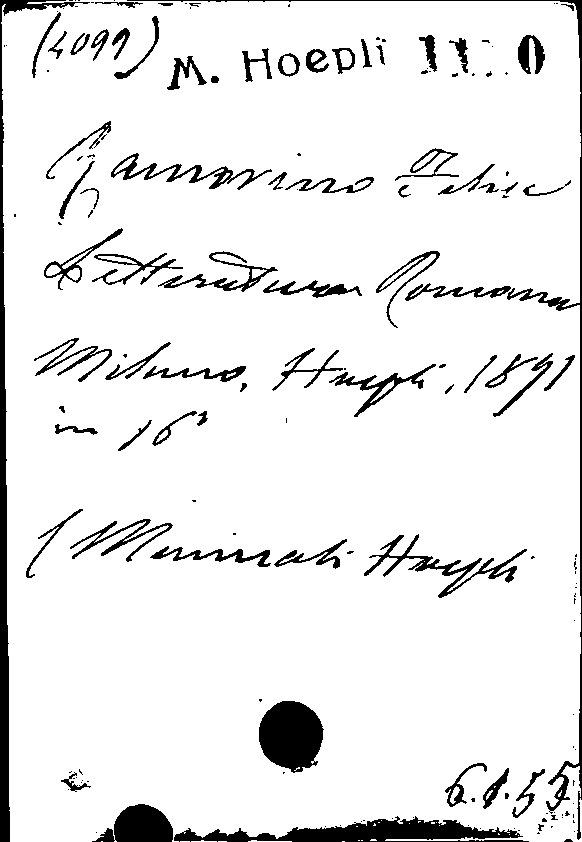 (4099)
M. Hoepli 11 0
Ramorino Felice
Letteratura Romana
Milano, Hoepli, 1891
in 16°
(Manuali Hoepli
6.1.55